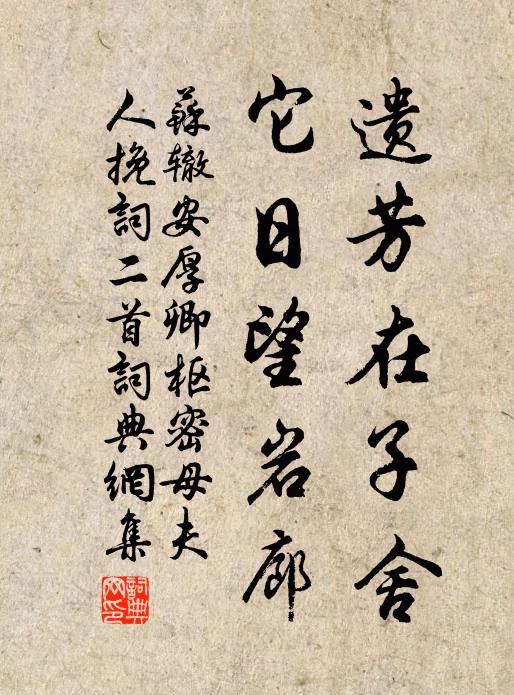 遗芳在子舍
它日望岩廊
蘇辙安厚卿枢密母夫
人挽詞二首詞典網集
詞典网印